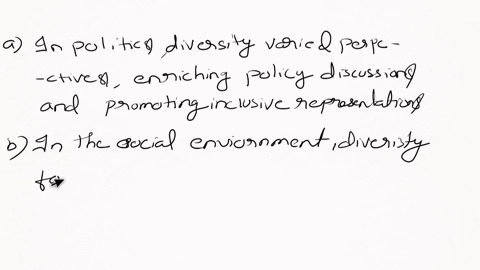 a) In politics, diversity varied perpe-
-ctives, enriching policy discussions
and promoting inclusive representations
b) In the social enviornment, diveristy
fo